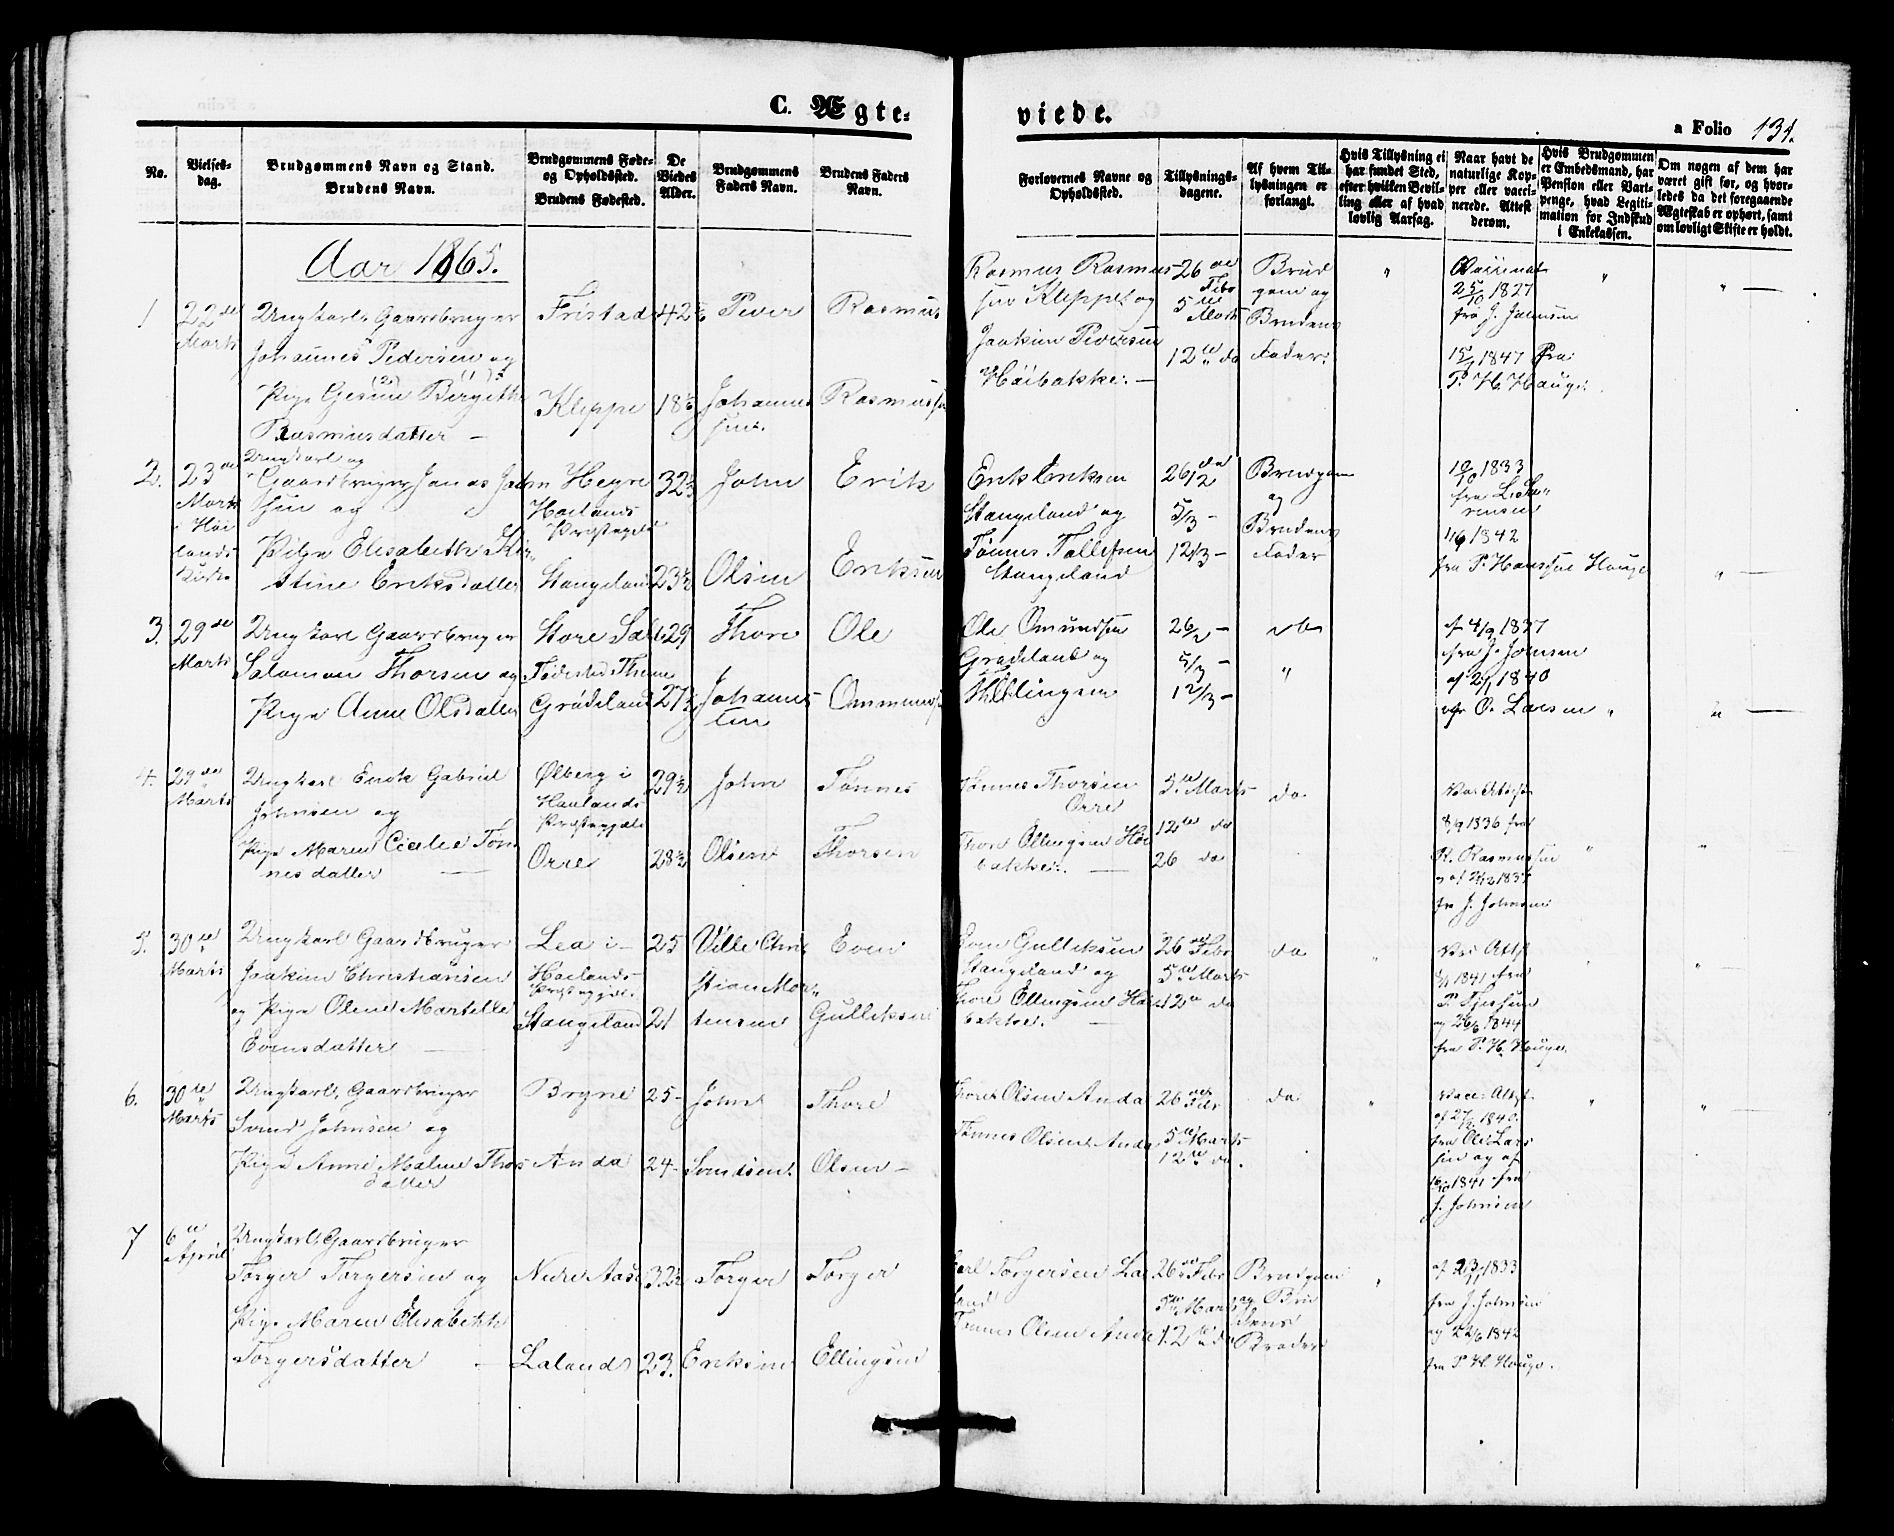 C. Ægte-
viede.
a Folio 131.
No.
Vielses-
dag.
Brudgommens Navn og Stand.
Brudens Navn.
Brudgommens Føde-
og Opholdssted.
Brudens Fødested.
De
Viedes
Alder.
Brudgommens
Faders Navn.
Brudens Faders
Navn.
Forlovernes Navne og
Opholdssted.
Tillysnings-
dagene.
Af hvem Til-
lysningen er
forlangt.
Hvis Tillysning ei
har fundet Sted,
efter hvilken Bevil-
ling eller af hvad
lovlig Aarsag.
Naar havt de
naturlige Kop-
per eller vacci-
nerede. Attest
derom.
Hvis Brudgommen
er Embedsmand, har
Pension eller Vart-
penge, hvad Legiti-
mation for Indskud
i Enkekassen.
Om nogen af dem har
været gift før, og hvor-
ledes da det foregaaende
Ægteskab er ophørt, samt
om lovligt Skifte er holdt.
Aar 1865.
1
22de
Marts
Ungkarl, Gaardbruger
Johannes Pedersen og
Pige Gesine (2) Bergithe (1)
Rasmusdatter
Fristad
Kleppe
42
18
Peder
Johannes
Rasmus
Rasmussen
Rasmus Rasmus-
sen Kleppe og
Joakim Pedersen
Høibakke
26de
Febr
5te
Marts
12te do
Brud
gom og
Brudens
Fader
Vaccinat
25/10 1827
fra J. Johnsen
1847 fra
P. H. Hauge
2.
23de
Marts
i Høi
lands
Kirke
Ungkarl og
Gaardbruger Jonas John
sen og
Pige Elisabeth Kir-
stine Eriksdatter
Hegre
Høilands
Præstegjeld
Stangeland
32½
23½
John
Olsen
Erik
Eriksen
Erik Eriksen
Stangeland og
Tønnes Tollefsen
Stangeland
26/2
5/3
12/3
Brudgom
og
Brudens
Fader
1833
fra L. Sø-
rensen
1842
fra P. Hanssen Hauge
3.
29de
Marts
Ungkarl Gaardbruger
Salomon Thorsen og
Pige Anne Olsdatter
Store Sal
Fødested Thime
Grødeland
29
27½
Thore
Johannes
sen
Ole
Ommunds
Ole Omundsen
Grødeland og
26/2
5/3
12/3
do
af 4/9 1837
fra J. Johnsen
af 1840
O. Larsen
4.
29de
Marts
Ungkarl Enok Gabriel
Johnsen og
Pige Maren Cecilie Tøn
nesdatter
Ølberg i
Haalands
Præstegjeld
Orre
29½
28½
John
Olsen
Tønnes
Thorsen
Tønnes Thorsen
Orre
Thore Ellingsen Høi
bakke
5te Marts
12te do
26 do
do
Vac. Attest
8/9 1836 fra
R. Rasmussen
fra J. Johnsen
5.
30te
Marts
Ungkarl Gaardbruger
Joakim Christiansen
og Pige Olene Martelle
Evensdatter
Lea i
Høilands
Præstegjeld
Stangeland
25
21
Ville Chri
stian Mor-
tensen
Even
Gulliksen
Even Gulliksen
Stangeland og
Thore Ellingsen Høi
bakke.
26de Febr
5te Marts
12te do
do
Vac. Attst
1841 fra
og 26/6 1844
fra P. H. Hauge
6.
30te
Marts
Ungkarl, Gaardbruger
Svend Johnsen og
Pige Anne Maline Thors
datter
Bryne
Anda
25
24
John
Svendsen
Thore
Olsen
Thore Olsen Anda
Tønnes Olsen Anda
26de
Febr
5te Marts
12te do.
do
Vacc. Attst.
1840
fra Ole Lars
sen og af
16/10 1841 fra
J. Johnsen
7
6te
April
Ungkarl, Gaardbruger
Torger Torgersen og
Pige Maren Elisabeth
Torgersdatter
Nedre Aase
Laland
32½
23.
Torger
Eriksen
Torger
Ellingsen
Torgersen La
land
Tønnes Olsen Anda
26de Febr
5te Marts
12te do
Brudgom
og Bru
dens
Broder
af 23/11 1833
fra J. Johnsen
og 22/6 1842
fra P. H. Hauge.